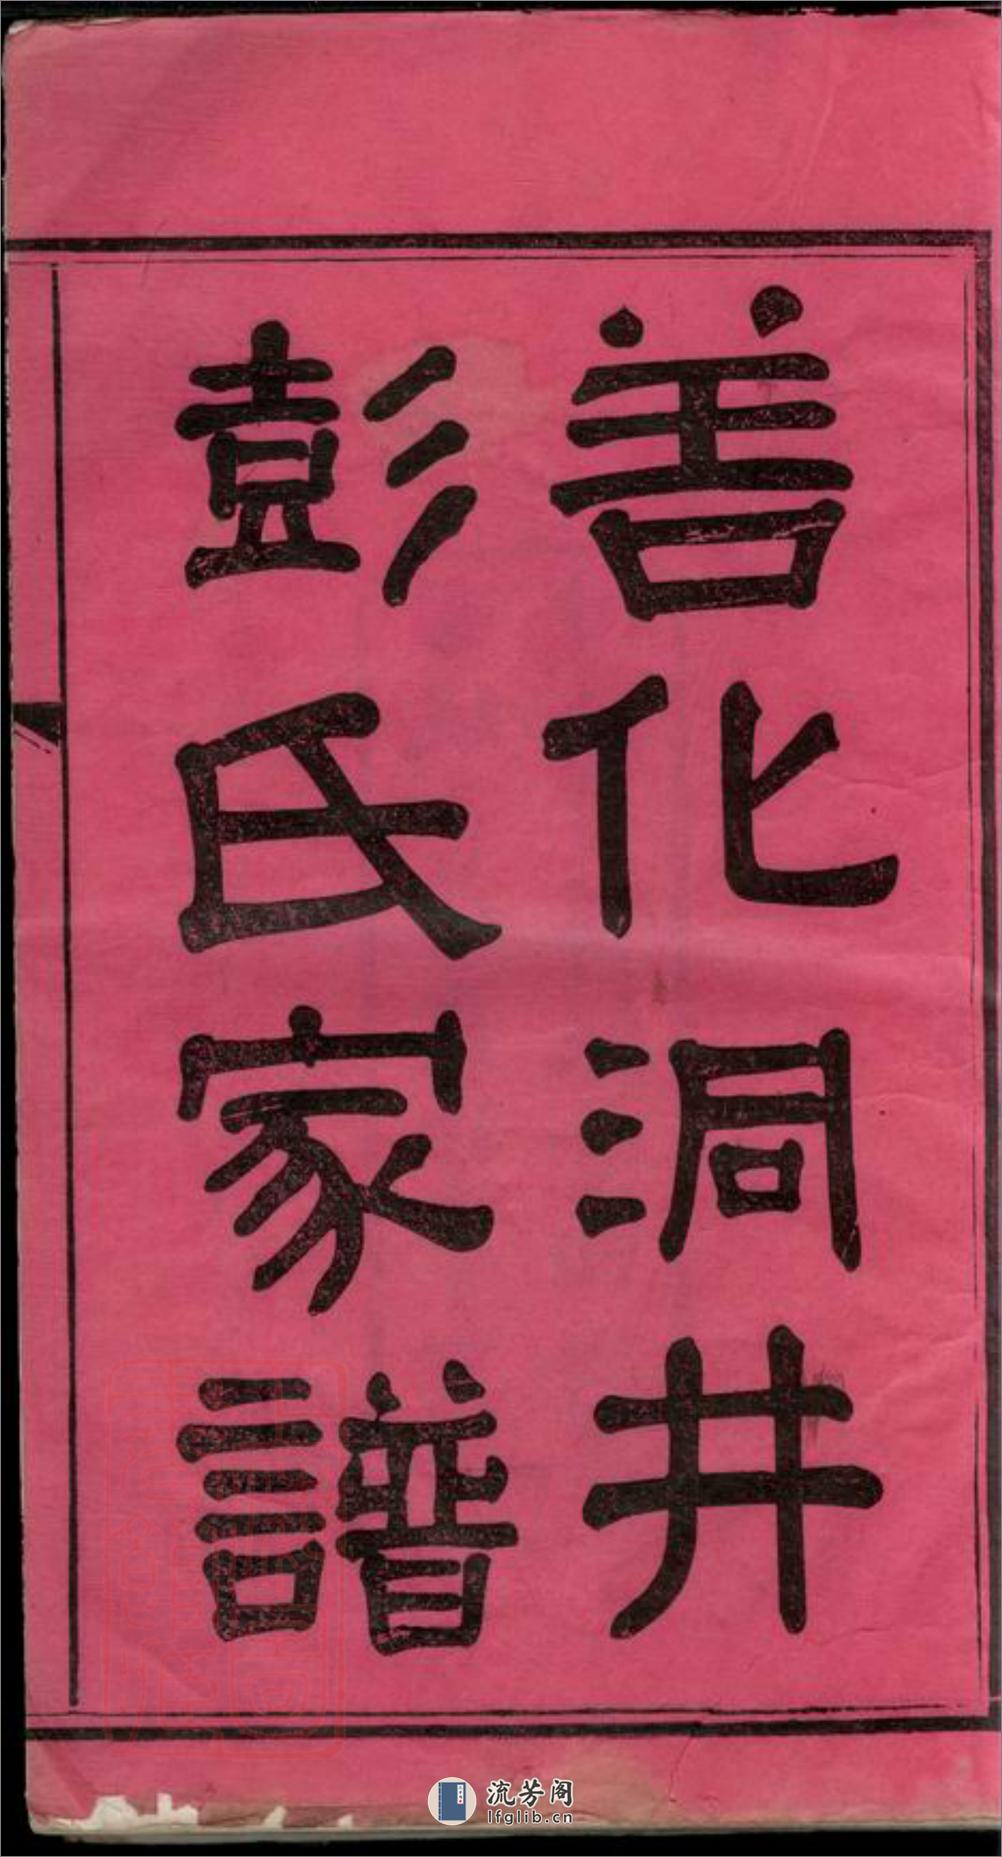 善化洞井
彭氏家譜
流芳阁
lfglib.cn